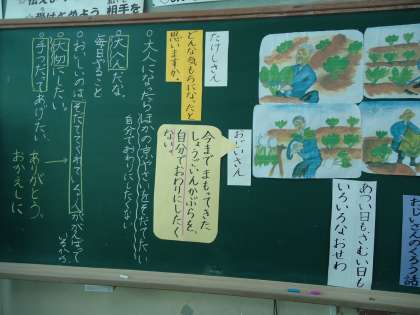 おじいさんのくろう話
あつい日も、さむい日も
いろいろなおせわ
たけしさん
どんな気もちになったと
思いますか。
おじいさん
今までまもってきた
しょうごいんかぶらを、
自分でおわりにしたく
ない。
○大人になったらほかの
自分でおわりにしたくない
○大へんだな。
毎日やること
○おいしいのはそだててくれている人ががんばって
いるから
○大切にしたい。
○手つだってあげたい。
ありがとう。
おかえしに